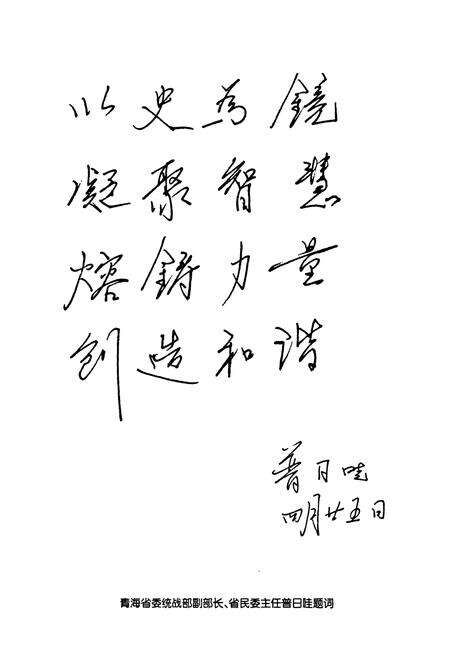 以史为镜
凝聚智慧
熔铸力量
创造和谐
普日哇
四月廿五日
青海省委统战部副部长、省民委主任普日哇题词